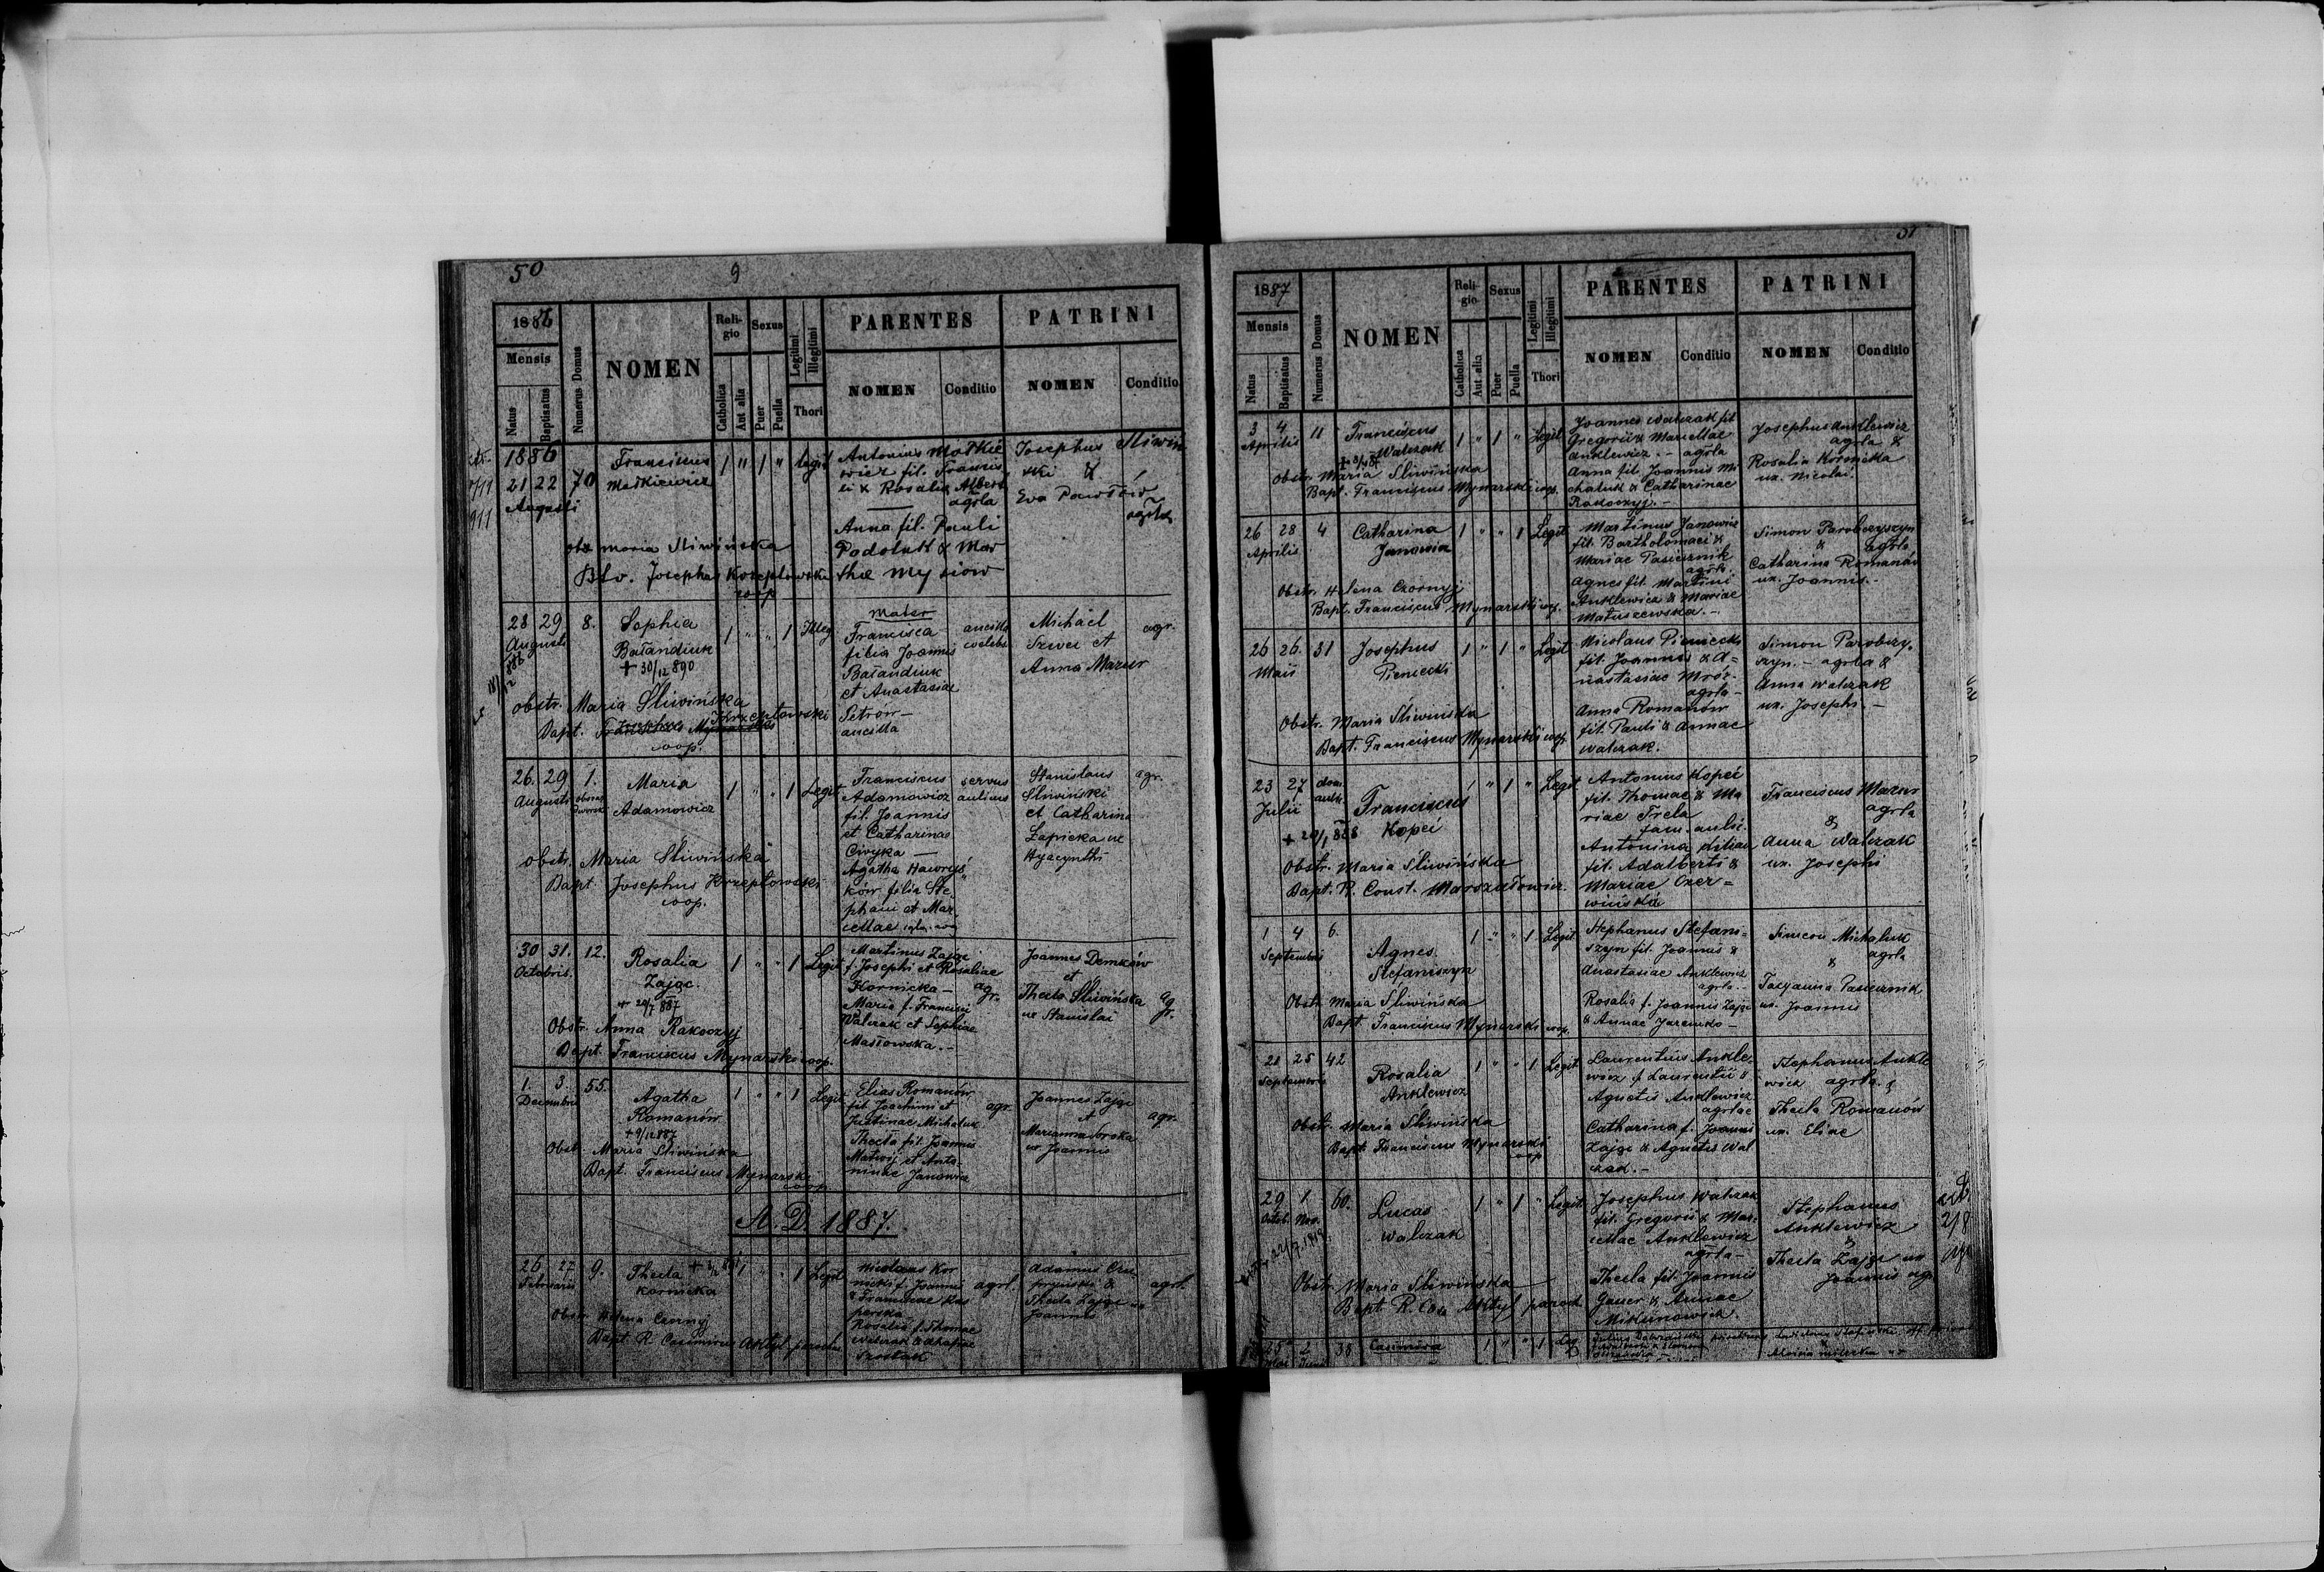 50
9
1886
Mensis
Natus
Baptisatus
Numerus Domus
NOMEN
Religio
Catholica
Aut alia
Sexus
Puer
Puella
Legitimi
Illegitimi
Thori
PARENTES
NOMEN
Conditio
PATRINI
NOMEN
Conditio
1886
21 22 70
Augusti
Franciscus
Maćkiewicz
1 " 1 " legit
Antonius Maćkie
wicz fil. Francis
ci & Rosalia Albert
agrla
Anna fil. Pauli
Podoluk & Mar
thae
Josephus Śliwiń
ski &
Eva Pawłów
agrla
obs Maria Śliwińska
Bto. Josephus Krzeptowski
coop
28 29 8.
Augusti
Sophia
Bałandiuk
+ 30/12 890
1 " " 1 Illeg
Mater
Francisca
filia Joannis
Bałandiuk
et Anastasiae
Petrów
ancilla
ancilla
coelebs
Michael
Szwec et
Anna Mazur
agr.
obstr. Maria Śliwińska
Bapt. Franciscus Mynarski
Josephus Krzeptowski
coop.
26. 29 1.
Augusti
Maria
Adamowicz
1 " " 1 Legit
Franciscus
Adamowicz
fil. Joannis
et Catharinae
Civyka
Agatha Hawryś
ków filia Ste
phani et Mar
cellae
servus
aulicus
Stanislaus
Śliwiński
et Catharina
Łapicka ux
Hyacynthi
agr.
obstr. Maria Śliwińska
Bapt Josephus Krzeptowski
coop.
30 31. 12.
Octobris.
Rosalia
Zając.
+ 20/7 887
1 " " 1 Legit
Martinus Zając
f. Josephi et Rosaliae
Kornicka
Maria f. Francisci
Walczak et Sophiae
Masłowska.
agr.
Joannes Demków
et
Thecla Śliwińska
ux Stanislai
agr.
Obstr. Anna Rakoczyj
Bapt. Franciscus Mynarski coop.
1. 3 55.
Decembris
Agatha
Romanów
+ 9/12 887
1 " " 1 Legit
Elias Romanów
fil. Joachimi et
Justinae Michaluk
Thecla fil. Joannis
Matwij et Anto
ninae Janowicz
agr.
Joannes Zając
et
Marianna Sorska
ux Joannis
agr.
Obstr. Maria Śliwińska
Bapt. Franciscus Mynarski
coop
A. D. 1887.
26 27 9.
Februarii
Thecla
Kornicka
1 " " 1 Legit
Nicolaus Kor
nicki f. Joannis
& Franciscae Kas
perska
Rosalia f. Thomae
Walczak & Agathae
Szostak
agrl.
Adamus
&
Thecla Zając ux
Joannis
agrl.
Obstr. Helena Czornyj
Bapt. R. Casimirus Aktyl paroch.
51
1887
Mensis
Natus
Baptisatus
Numerus Domus
NOMEN
Religio
Catholica
Aut alia
Sexus
Puer
Puella
Legitimi
Illegitimi
Thori
PARENTES
NOMEN
Conditio
PATRINI
NOMEN
Conditio
3 4 11
Aprilis
Franciscus
Walczak
1 " 1 " Legit
Joannes Walczak fil
Gregorii & Marcellae
Anklewicz. - agrla
Anna fil. Joannis Mi
chaluk & Catharinae
Rakoczyj. -
Josephus Anklewicz
agrla &
Rosalia Kornicka
ux. Nicolai.
Obstr. Maria Śliwińska
Bapt. Franciscus Mynarski coop.
26 28 4
Aprilis
Catharina
Janowicz
1 " " 1 Legit
Martinus Janowicz
fil. Bartholomaei &
Mariae Pasiecznik
agrla.
Agnes fil. Martini
Anklewicz & Mariae
Matuszewska. -
Simon Parobczyszyn
& agrla
Catharina Romanów
ux. Joannis. -
Obstr. Helena Czornyj
Bapt. Franciscus Mynarski coop.
26 26. 31
Maii
Josephus
Pieniecki
1 " 1 " Legit
Nicolaus Pieniecki
fil. Joannis & A=
nastasiae Mróz.
agrla -
Anna Romanów
fil. Pauli & Annae
Walczak.
Simon Parobczy=
szyn. - agrla &
Anna Walczak
ux. Josephi. -
Obstr. Maria Śliwińska
Bapt. Franciscus Mynarski coop
23 27 dom.
Julii aulic.
Franciscus
Kopeć
1 " 1 " Legit
Antonius Kopeć
fil. Thomae & Ma
riae Trela
fam. aulic.
Antonina Kilian
fil. Adalberti &
Mariae Czer=
wińska
Franciscus Mazur
agrla
&
Anna Walczak
ux. Josephi
Obstr. Maria Śliwińska
Bapt. R. Const. Marszałowicz.
1 4 6.
Septembris
Agnes
Stefaniszyn
1 " " 1 Legit
Stephanus Stefani=
szyn fil. Joannis &
Anastasiae Anklewicz
agrla -
Rosalia f. Joannis Zając
& Annae Jaremko -
Simeon Michaluk
& agrla
Tacyanna Pasiecznik
ux. Joannis
Obstr. Maria Śliwińska
Bapt Franciscus Mynarski coop.
21 25 42
Septembris
Rosalia
Anklewicz
1 " " 1 Legit
Laurentius Ankle=
wicz f. Laurentii &
Agnetis Anklewicz
agrlae
Catharina f. Joannis
Zając & Agnetis Wal
czak. -
Stephanus Ankle
wicz agrla. &
Thecla Romanów
ux. Eliae
Obstr. Maria Śliwińska
Bapt. Franciscus Mynarski
coop
29 1. 60.
Octob. Nov.
Lucas
Walczak
1 " 1 " Legit
Josephus Walczak
fil. Gregorii & Mar=
cellae Anklewicz
agrla -
Thecla fil. Joannis
Gauer & Annae
Mikłunowicz.
Stephanus
Anklewicz
&
Thecla Zając ux
Joannis agr.
Obstr. Maria Śliwińska
Bapt. R. Cas. Aktyl paroch.
25 2 38 Casimira
1 " " 1 Leg